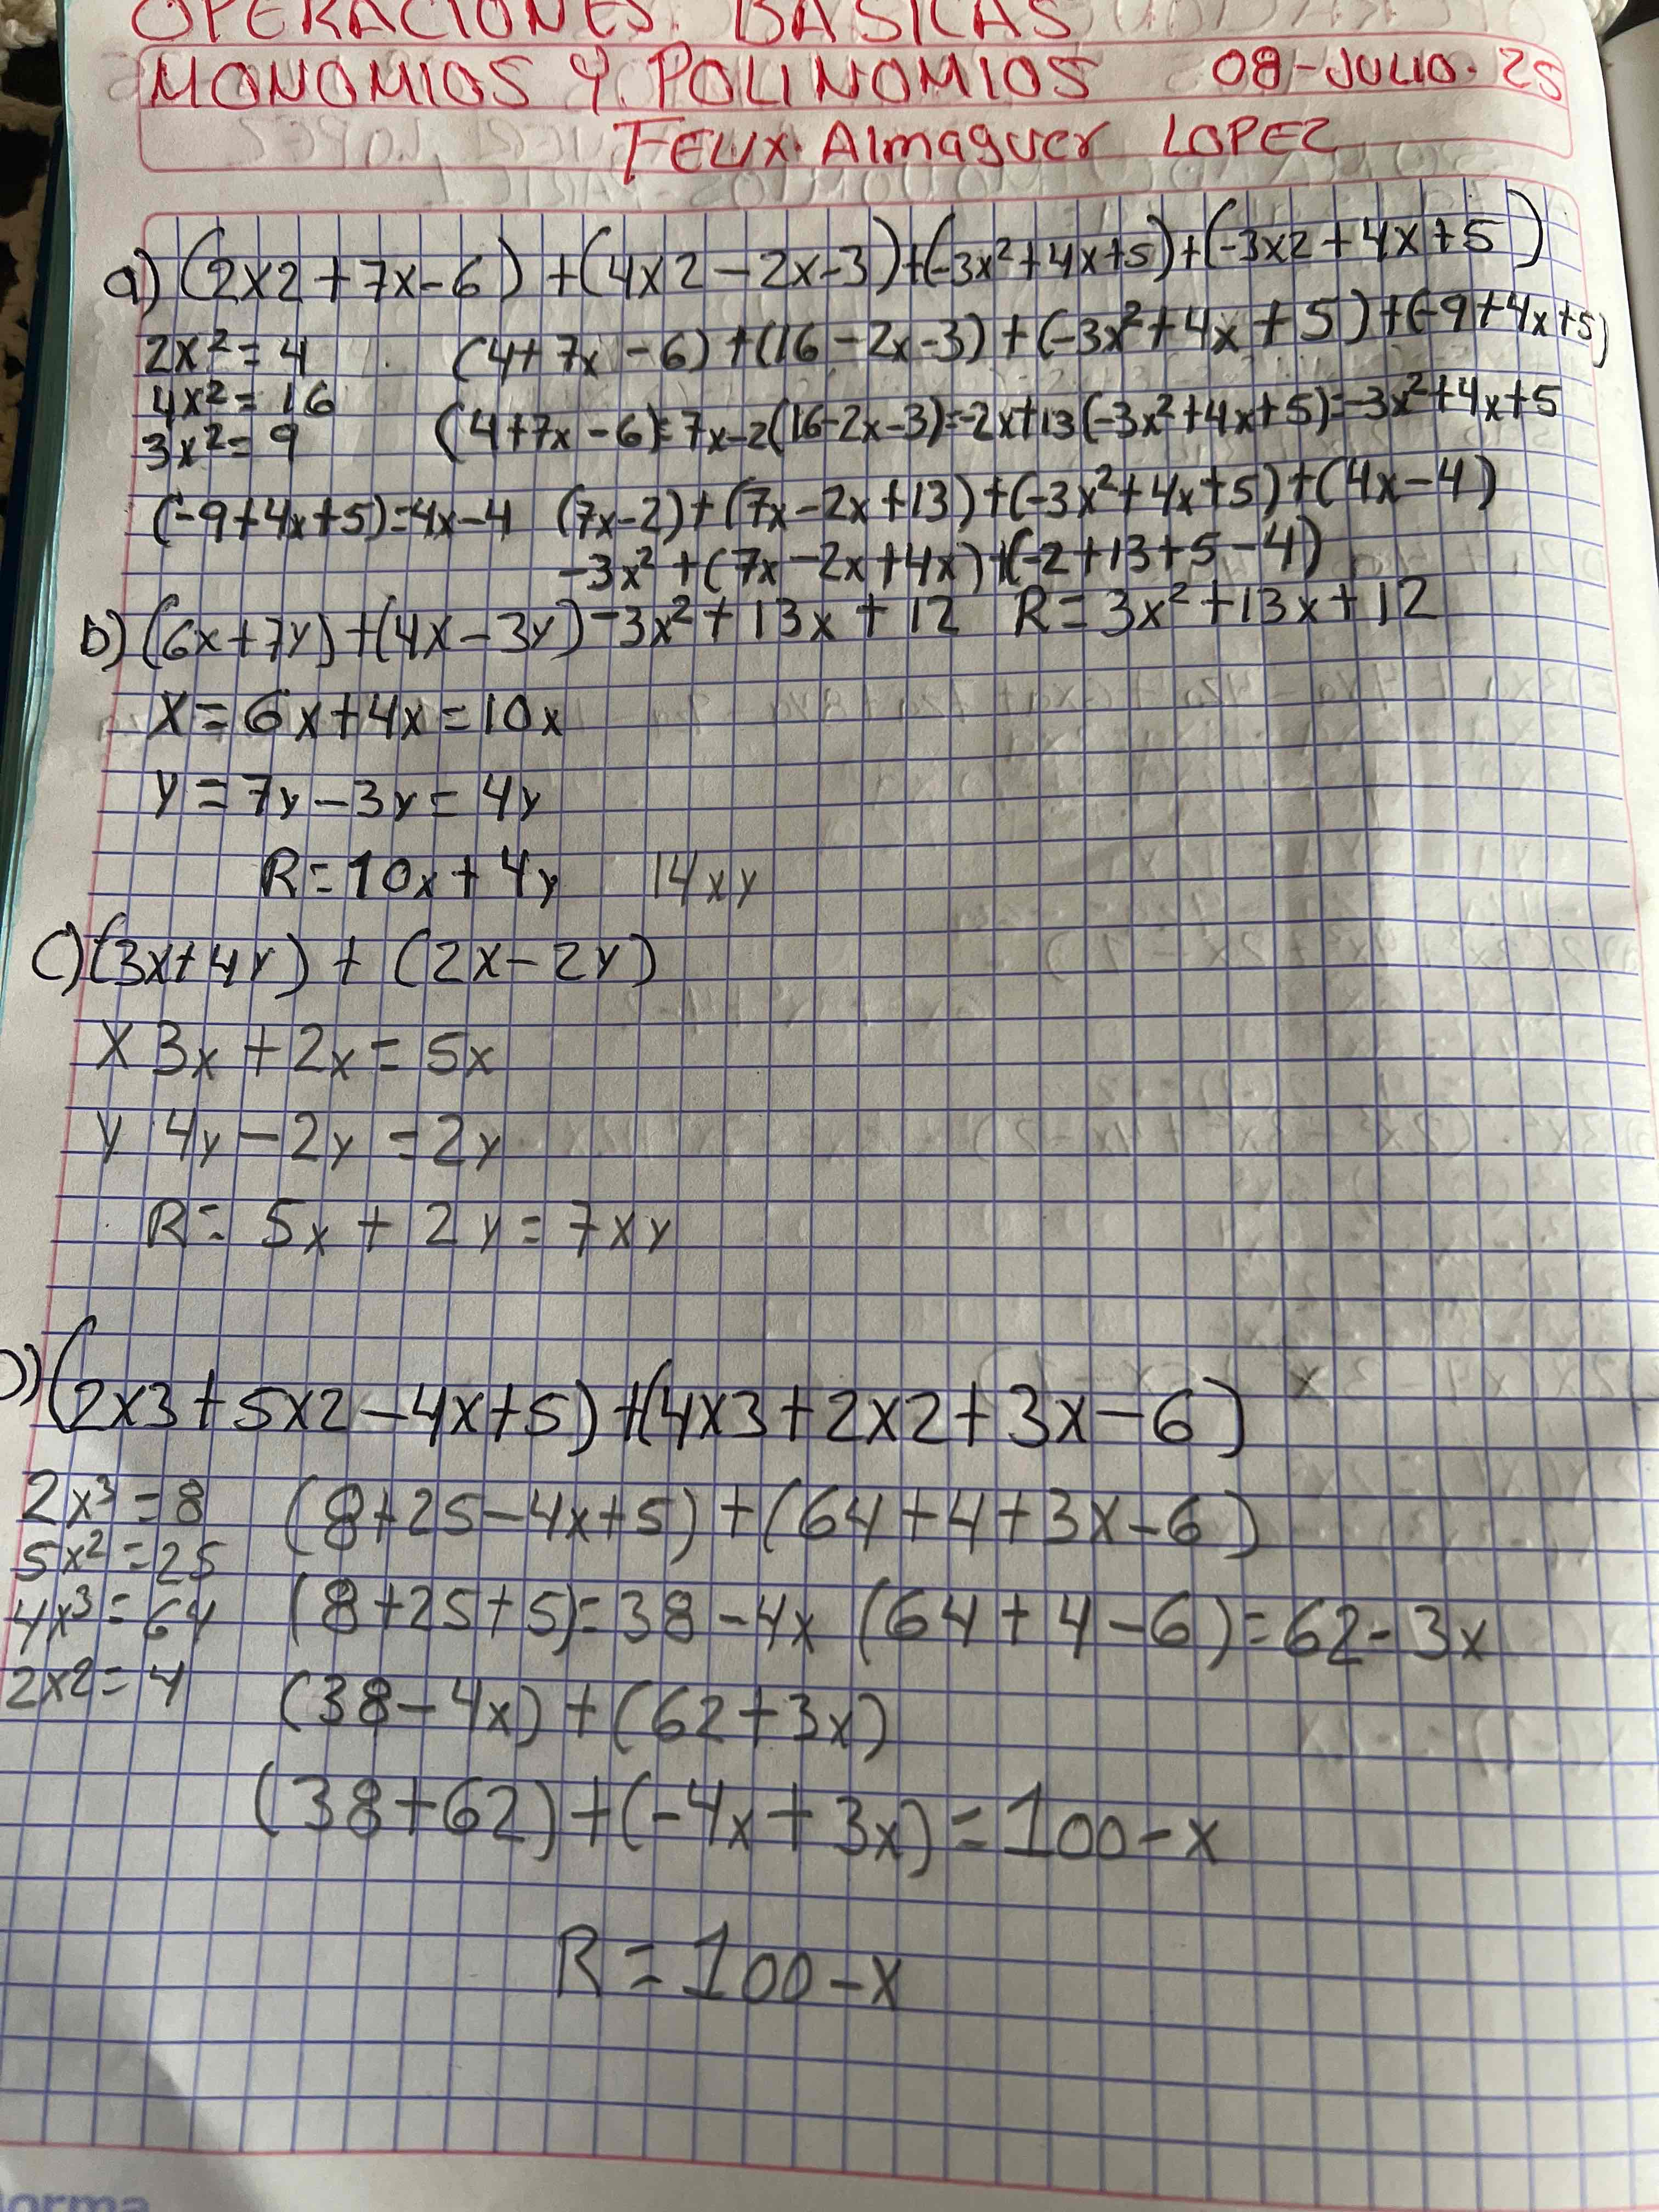 OPERACIONES BASICAS
MONOMIOS Y POLINOMIOS 08-JULIO-25
FELIX Almaguer LOPEZ
a) (2x2+7x-6)+(4x2-2x-3)+(-3x²+4x+5)+(-3x2+4x+5)
2x²=4 (4+7x-6)+(16-2x-3)+(-3x²+4x+5)+(-9+4x+5)
4x²=16
3x²=9 (4+7x-6)=7x-2(16-2x-3)=-2x+13(-3x²+4x+5)=-3x²+4x+5
(-9+4x+5)=4x-4 (7x-2)+(7x-2x+13)+(-3x²+4x+5)+(4x-4)
-3x²+(7x-2x+4x)+(-2+13+5-4)
b) (6x+7y)+(4x-3y) -3x²+13x+12 R=3x²+13x+12
X=6x+4x=10x
Y=7y-3y=4y
R=10x+4y 14xy
C) (3x+4y)+(2x-2y)
X 3x+2x=5x
y 4y-2y=2y
R=5x+2y=7xy
D) (2x3+5x2-4x+5)+(4x3+2x2+3x-6)
2x³=8 (8+25-4x+5)+(64+4+3x-6)
5x²=25
4x³=64 (8+25+5)=38-4x (64+4-6)=62-3x
2x2=4 (38-4x)+(62+3x)
(38+62)+(-4x+3x)=100-x
R=100-x